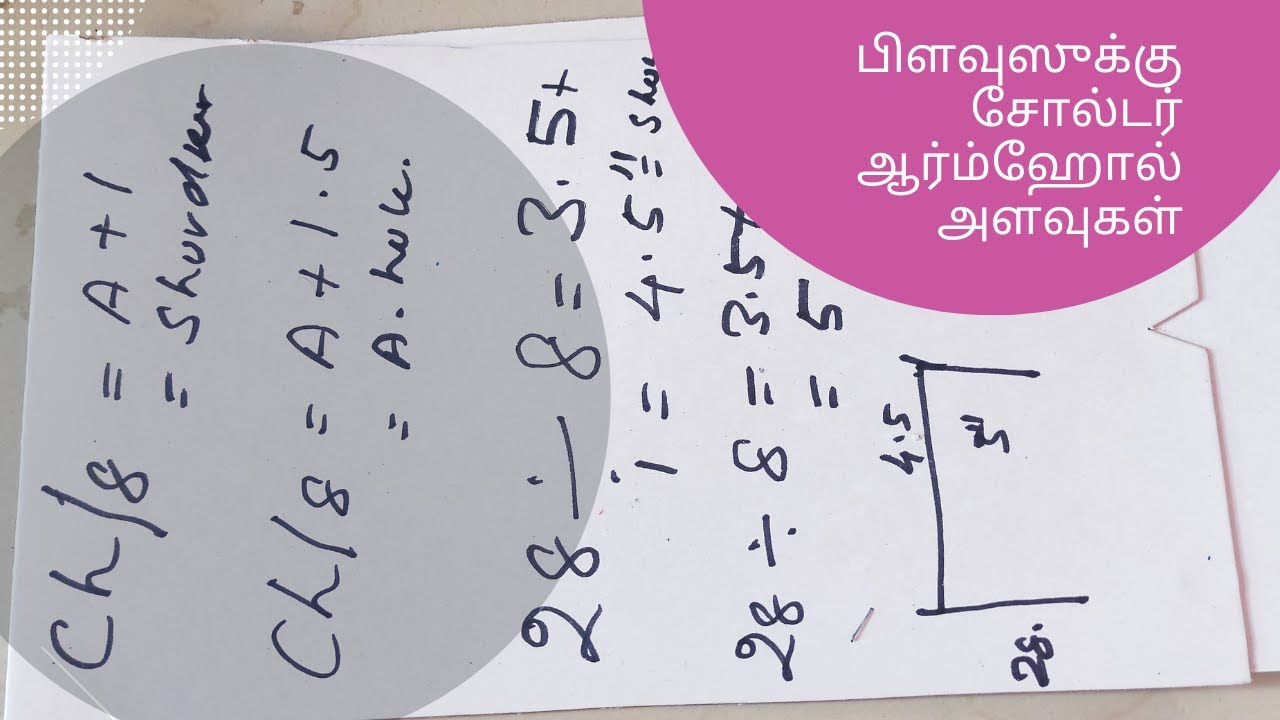 பிளவுஸுக்கு
சோல்டர்
ஆர்ம்ஹோல்
அளவுகள்
Ch/8 = A + 1
= Shordker
Ch/8 = A + 1.5
= A.hole.
28 ÷ 8 = 3.5+
1 = 4.5" = Shor
28 ÷ 8 = 3.5+
= 5
4.5
5"
28.